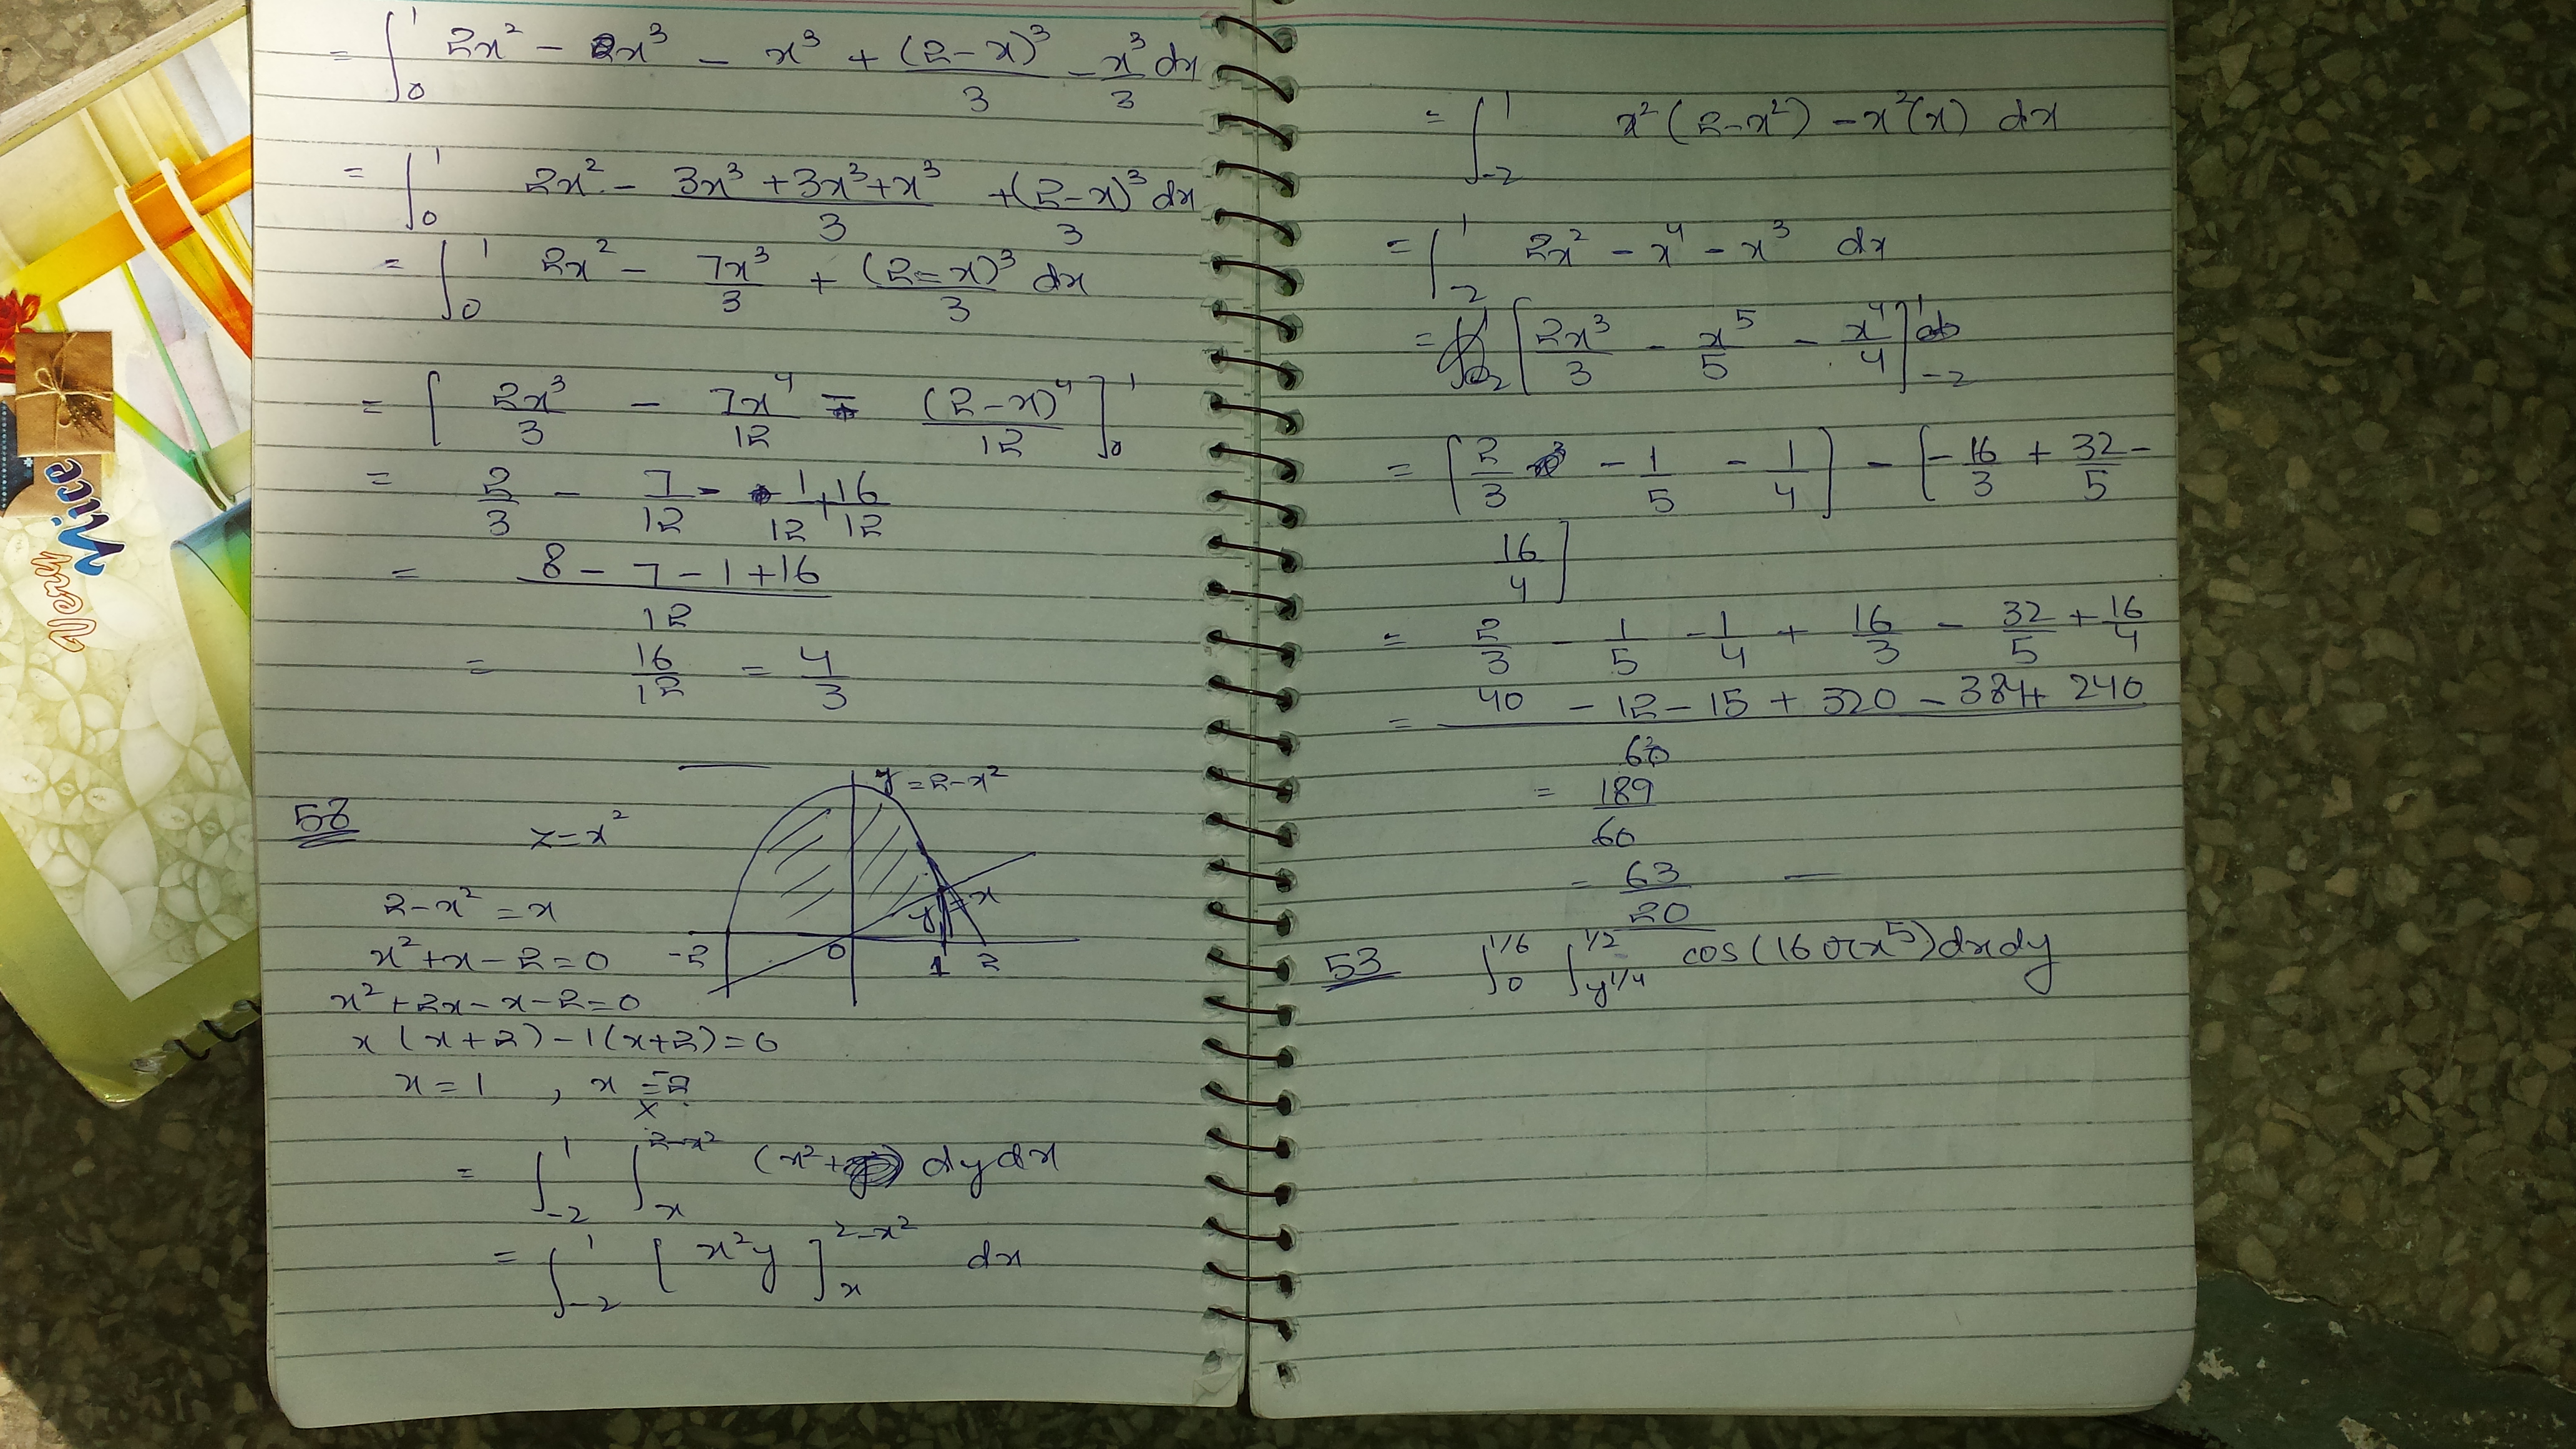 = ∫₀¹ 2x² - 2x³ - x³ + (2-x)³/3 - x³/3 dx
= ∫₀¹ 2x² - (3x³ + 3x³ + x³)/3 + (2-x)³/3 dx
= ∫₀¹ 2x² - 7x³/3 + (2-x)³/3 dx
= [ 2x³/3 - 7x⁴/12 - (2-x)⁴/12 ]₀¹
= 2/3 - 7/12 - 1/12 + 16/12
= (8 - 7 - 1 + 16)/12
= 16/12 = 4/3
58
z = x²
y = 2-x²
y = x
-2 0 1 2
2-x² = x
x² + x - 2 = 0
x² + 2x - x - 2 = 0
x (x+2) - 1(x+2) = 0
x = 1 , x = -2
×
= ∫₋₂¹ ∫ₓ^(2-x²) (x² + ) dy dx
= ∫₋₂¹ [ x²y ]ₓ^(2-x²) dx
= ∫₋₂¹ x² (2-x²) - x²(x) dx
= ∫₋₂¹ 2x² - x⁴ - x³ dx
= [ 2x³/3 - x⁵/5 - x⁴/4 ]₋₂¹
= [ 2/3 - 1/5 - 1/4 ] - [ -16/3 + 32/5 -
16/4 ]
= 2/3 - 1/5 - 1/4 + 16/3 - 32/5 + 16/4
= (40 - 12 - 15 + 320 - 384 + 240)/60
= 189/60
= 63/20
53 ∫₀^(1/6) ∫_(y^(1/4))^(1/2) cos(16πx⁵) dx dy
Nice